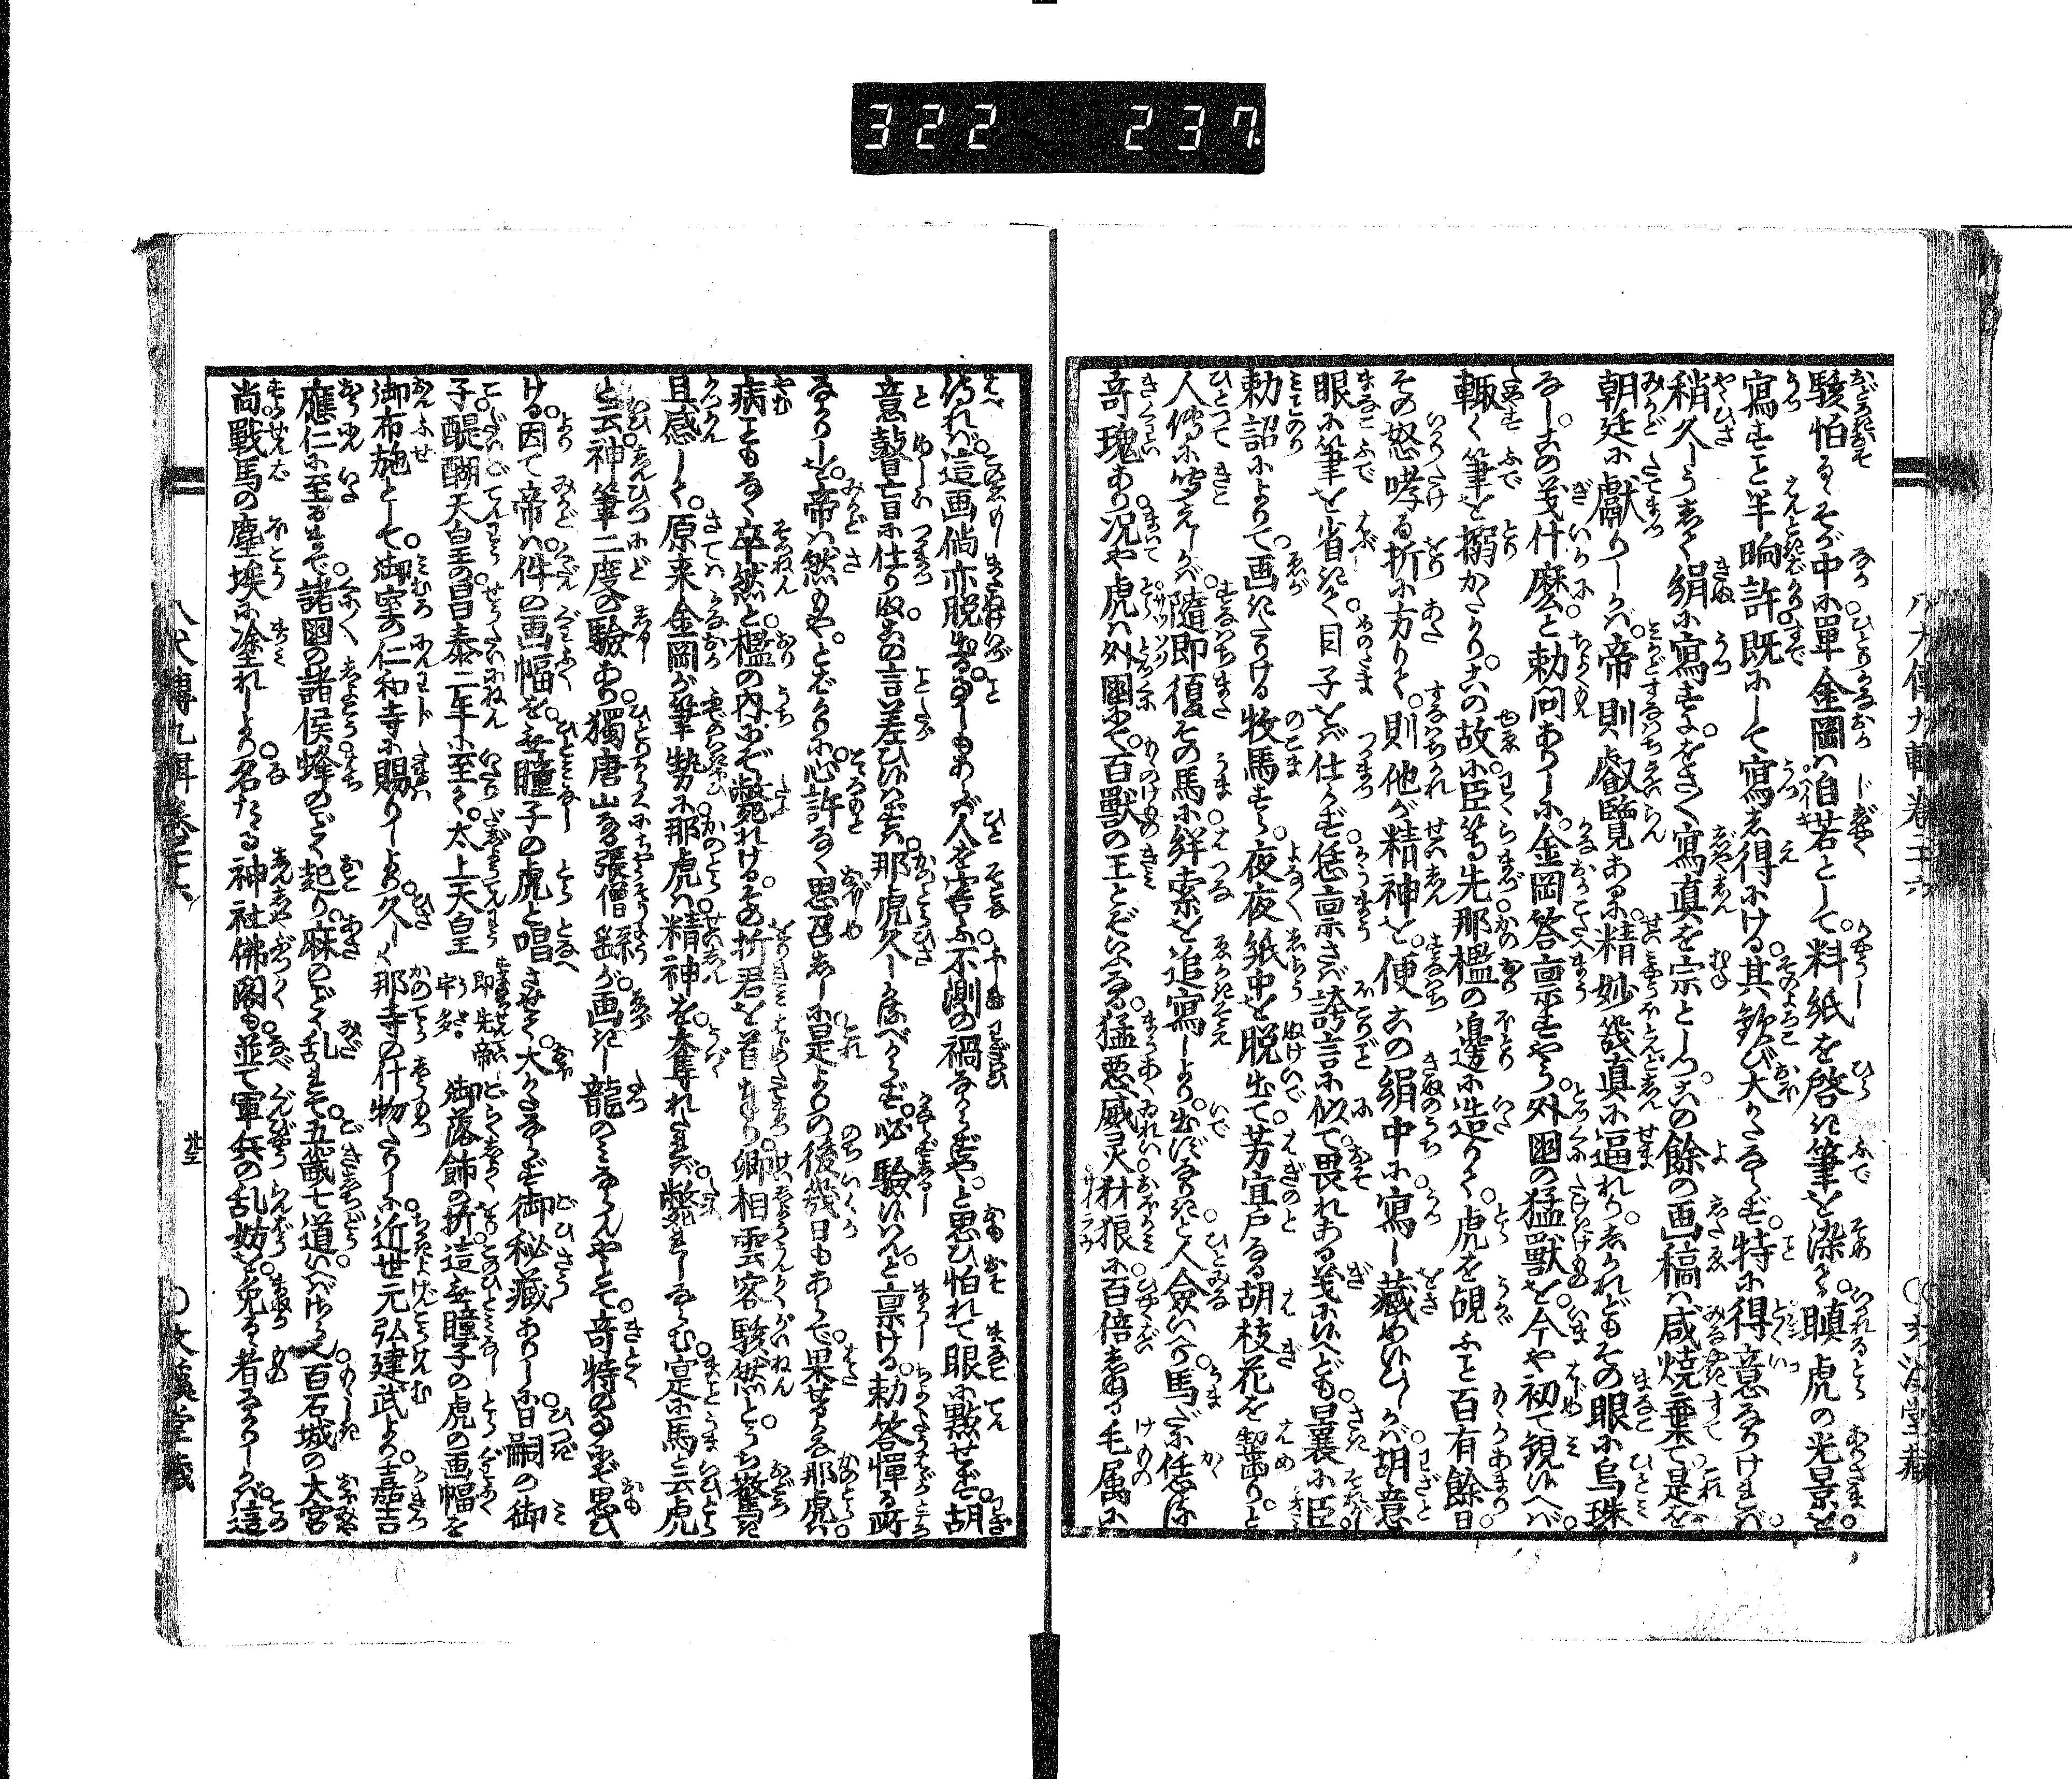 322 237
八犬傳九輯卷二十六
駭怕るゝその中に單金岡は自若として料紙を啓き筆を染て瞋虎の光景を
寫すこと半晌許既にして寫し得にける其歓び大かたならず特に得意なりければ
稍久しうして絹に寫すによをさ〳〵寫真を宗としつこの餘の画稿は咸焼棄て是を
朝廷に獻りしかば帝則叡覽あるに精妙幾真に逼れりしかれどもその眼に烏珠
なしこの義什麼と勅問ありしに金岡答禀すやう外國の猛獸を今や初て観いへば
輙く筆を搦かたかりこの故に臣等先那檻の邊に造りて虎を覘ふこと百有餘日
その怒哮る折に方りて則他が精神を便この絹中に寫し藏めいひしかば胡意
眼に筆を省きて目子をば仕らず恁禀さば誇言に似て畏れある義にいへども曩に臣
勅詔によりて画きたりける牧馬すら夜夜紙中を脱出て芳宜戸なる胡枝花を齧りと
人傳に聞えしかば隨即復その馬に絆索を追寫しより出ずなりきと人僉いへり馬だに恁係
竒瑰あり况や虎は外國にて百獸の王とぞいふなる猛悪威灵豺狼に百倍しぬる毛属に
はべれば這画倘亦脱出るよしもあらば人を害ふ不測の禍ならずやと思ひ怕れて眼に點せず胡
意瞽言に仕り畋この言差ひいはずは那虎久しかるべからず必驗いはんと禀ける勅答憚る所
なかりしを帝は然もやとばかりに心許なく思召しゝに是よりの後幾日もあらで果せるかな那虎は
病こともなく卒然と檻の内にぞ斃れけるその折君を首奉り卿相雲客駭然とうち驚き
且感しく原来金岡が筆勢に那虎は精神を奪れたれば斃れしならむ寔に馬と云虎
と云神筆二度の驗あり獨唐山なる張僧繇が画きし龍のみならんやとて竒特のよしに思ひ
ける因て帝は件の画幅を無瞳子の虎と唱させて大かたならず御秘藏ありしに日嗣の御
子醍醐天皇の昌泰二年に至て太上天皇即先帝宇多御落飾の折這無瞳子の虎の画幅を
御布施として御室の仁和寺に賜りしより久しく那寺の什物たりしに近世元弘建武より嘉吉
應仁に至るまで諸國の諸侯蜂のごとく起り麻のごとく乱れて五畿七道いへばさら也百石城の大宮
尚戰馬の塵埃に塗れしより名たゝる神社佛閣も並て軍兵の乱妨を免るゝ者なかりしかば這
八犬傳九輯卷二十六
廿五
文溪堂藏